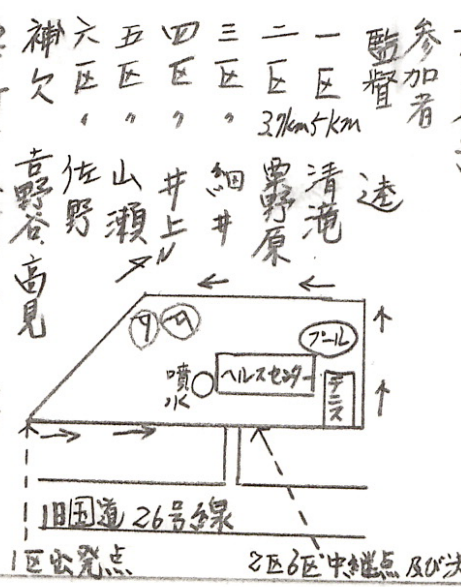 参加者
監督 逵
一区 5km 清滝
二区 3.7km 粟野原
三区 〃 細井
四区 〃 井上
五区 〃 山瀬
六区 〃 佐野
補欠 吉野谷 高見
N
プール
ヘルスセンター
テニス
噴水
旧国道26号線
1区出発点
2区6区中継点及び